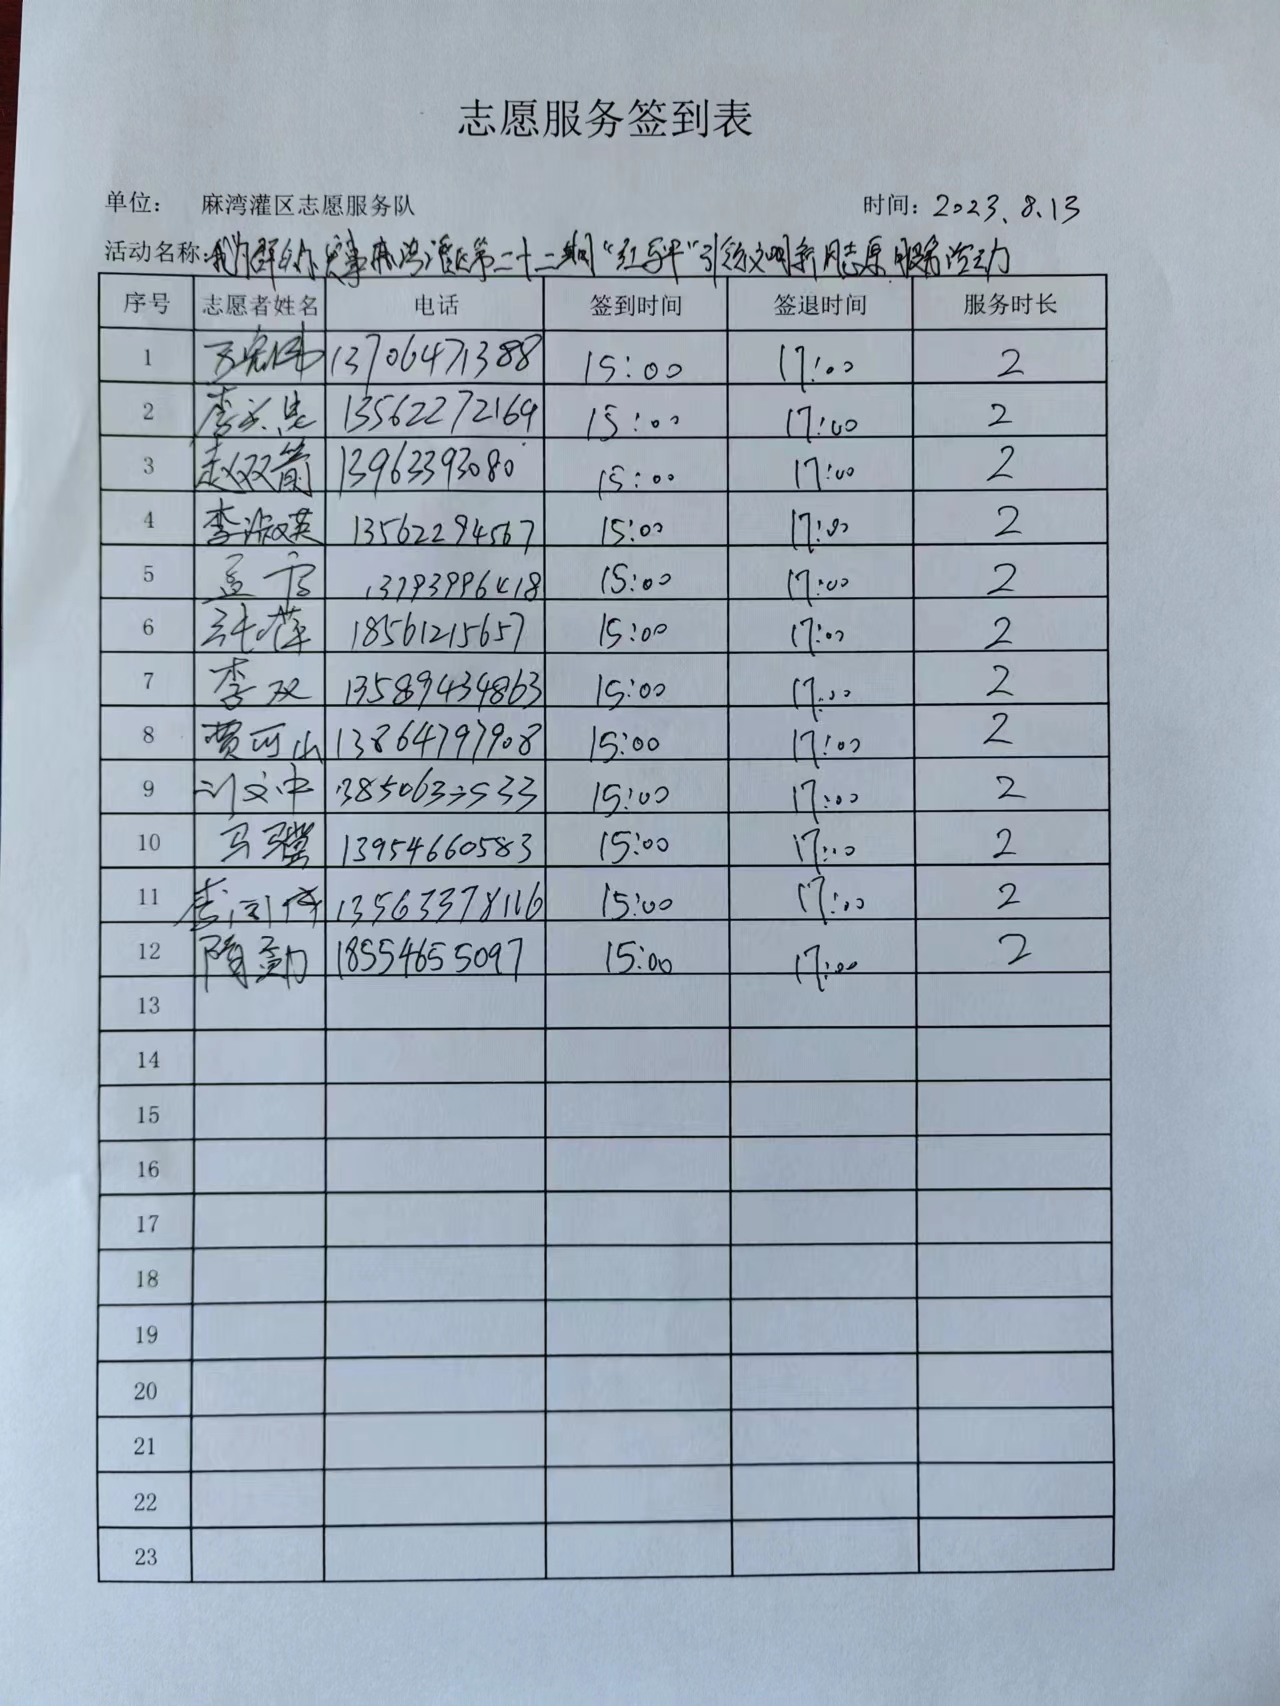 志愿服务签到表
单位： 麻湾灌区志愿服务队 时间：2023.8.13
活动名称:我为群众办实事麻湾灌区第二十二期“红马甲”引领文明新风志愿服务活动
序号 志愿者姓名 电话 签到时间 签退时间 服务时长
1 13706471388 15:00 17:00 2
2 13562272169 15:00 17:00 2
3 赵双箭 13963393080 15:00 17:00 2
4 李淑英 13562294567 15:00 17:00 2
5 孟芳 13793996418 15:00 17:00 2
6 张萍 18561215657 15:00 17:00 2
7 李双 13589434863 15:00 17:00 2
8 贾可山 13864797908 15:00 17:00 2
9 刘文中 15:00 17:00 2
10 马骥 13954660583 15:00 17:00 2
11 13563378116 15:00 17:00 2
12 隋勐 18554655097 15:00 17:00 2
13
14
15
16
17
18
19
20
21
22
23